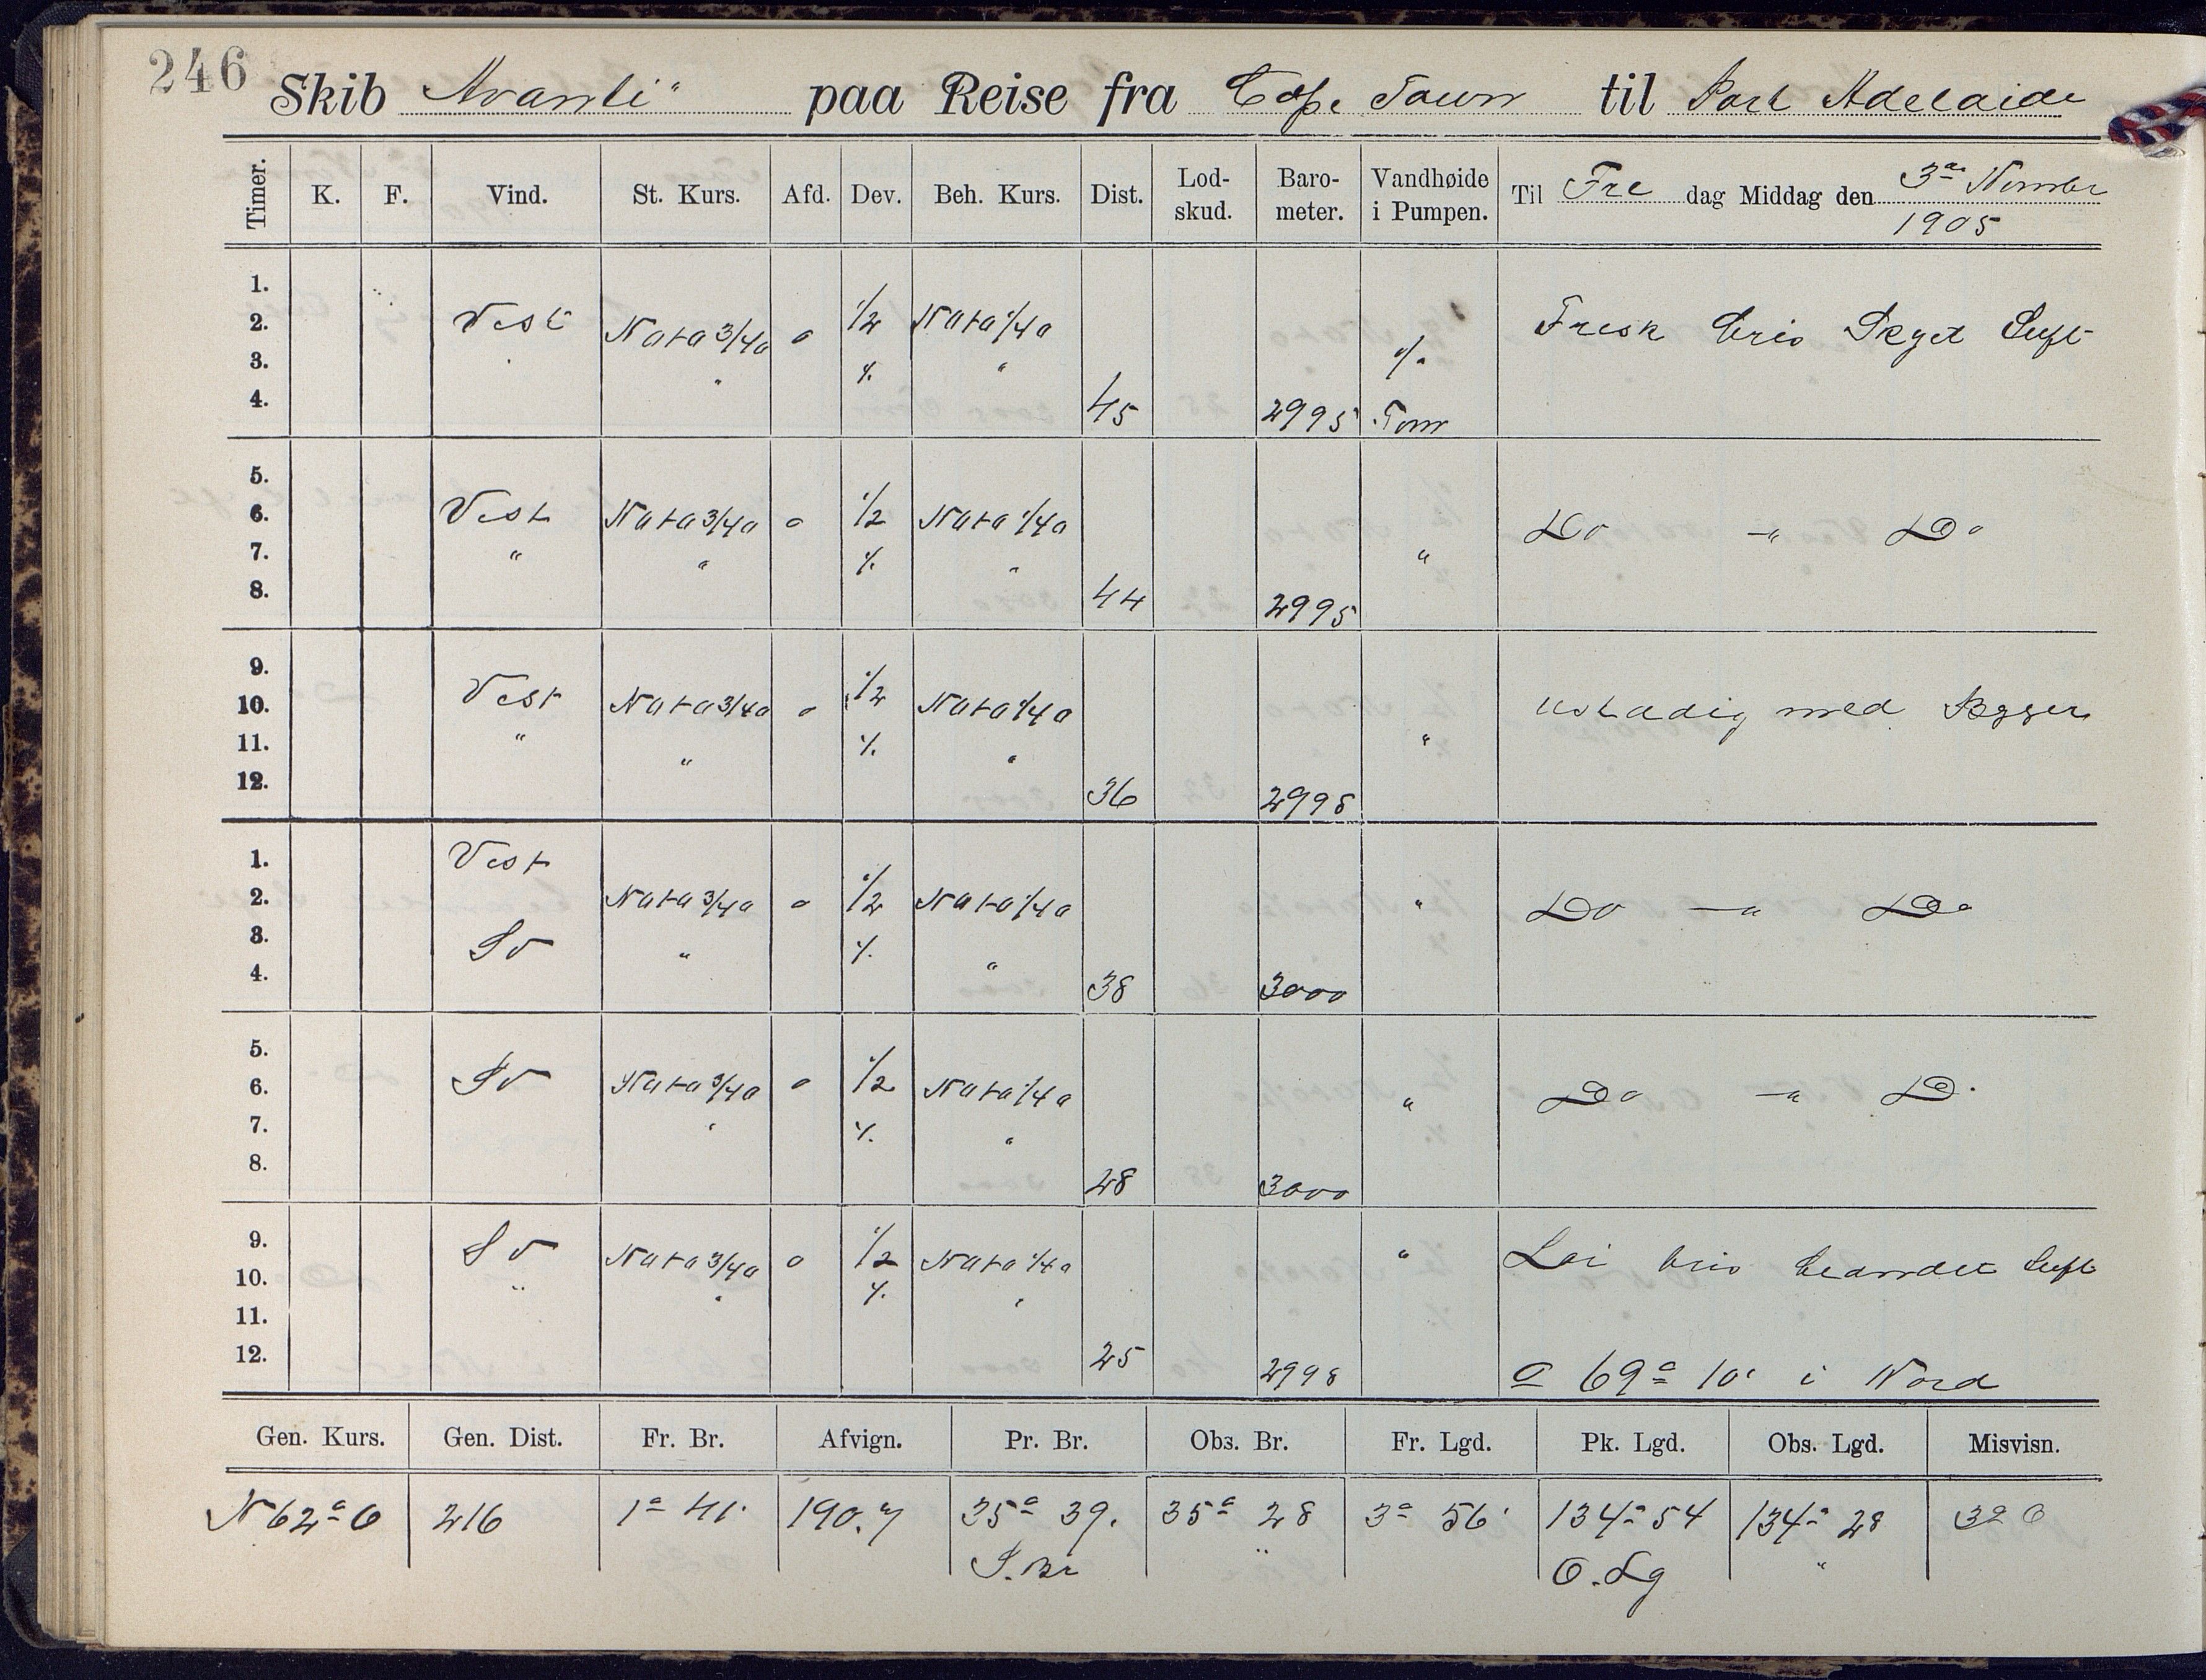 246
Skib "Avanti" paa Reise fra Cape Town til Port Adelaide
Timer. K. F. Vind. St. Kurs. Afd. Dev. Beh. Kurs. Dist. Lod-skud. Baro-meter. Vandhøide i Pumpen. Til Fre dag Middag den 3de Novmbr
1905
1.
2. Vest NOtO 3/4 O o 1/2 NOtO 1/4 O Frisk bris Skyet Luft
3. " V. "
4. 45 2995 Tom
5.
6. Vest NOtO 3/4 O o 1/2 NOtO 1/4 O Do " Do
7. " " V. " "
8. 44 2995
9.
10. Vest NOtO 3/4 O o 1/2 NOtO 1/4 O ustadig med Byger
11. " " V. " "
12. 36 2998
1. Vest
2. NOtO 3/4 O o 1/2 NOtO 1/4 O " Do " Do
3. SV " V. "
4. 38 3000
5.
6. SV NOtO 3/4 O o 1/2 NOtO 1/4 O " Do " D.
7. " V. "
8. 28 3000
9. SV NOtO 3/4 O o 1/2 NOtO 1/4 O " Lai bris blandet Luft
10. " " V. "
11.
12. 25 2998 O 69° 10' i Nord
Gen. Kurs. Gen. Dist. Fr. Br. Afvign. Pr. Br. Obs. Br. Fr. Lgd. Pk. Lgd. Obs. Lgd. Misvisn.
N 62° O 216 1° 41' 190.7 35° 39. 35° 28 3° 56' 134° 54 134° 28
S. Br " O. Lg "